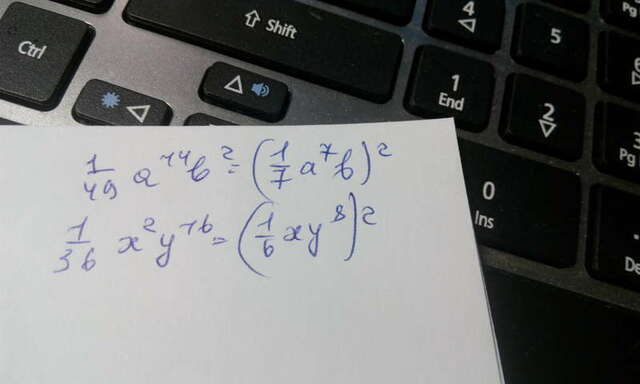 Ctrl
⇧ Shift
4
◁
5
6
Pg
1
End
2
▽
3
Pg
0
Ins
De
1/49 a^14 b^2 = (1/7 a^7 b)^2
1/36 x^2 y^16 = (1/6 x y^8)^2